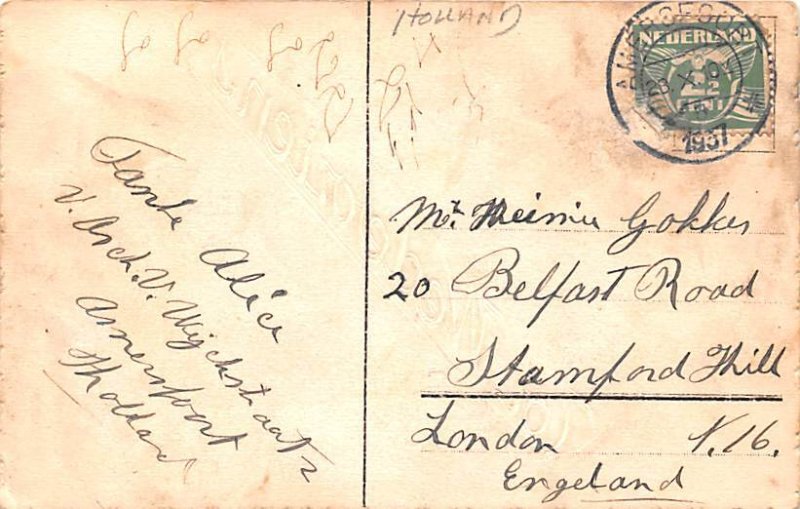 HOLLAND
NEDERLAND
2½
CENT
AMERSFOORT
1937
Tante Alice
v. Asch. v. Wijckstraat 2
Amersfoort
Holland
Mr. Heinie Gokkes
20 Belfast Road
Stamford Hill
London N.16.
Engeland